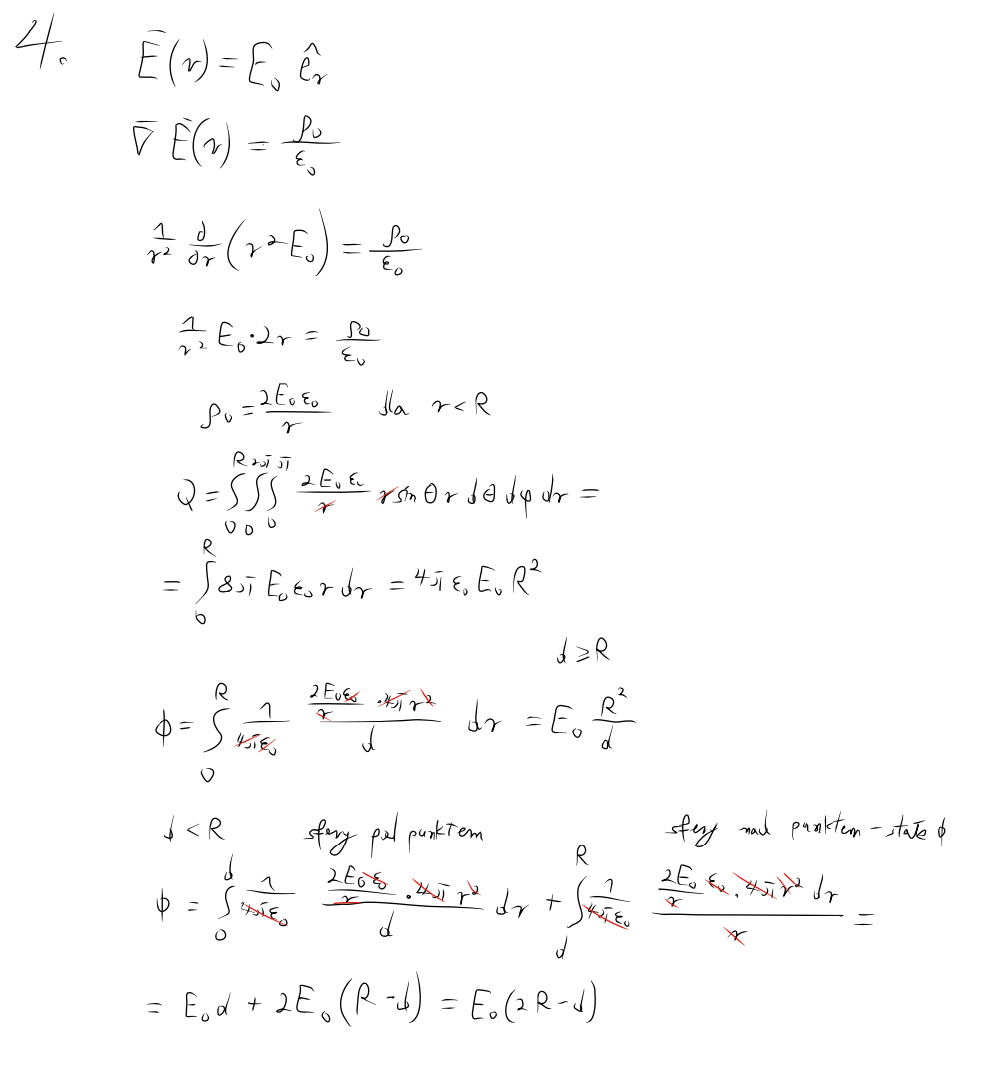 4. Ē(r) = E₀ ê_r
∇̄ Ē(r) = ρ₀/ε₀
1/r² ∂/∂r (r² E₀) = ρ₀/ε₀
1/r² E₀·2r = ρ₀/ε₀
ρ₀ = 2E₀ε₀/r dla r < R
Q = ∫₀^R ∫₀^2π ∫₀^π 2E₀ε₀/r r sin θ r dθ dφ dr =
= ∫₀^R 8π E₀ ε₀ r dr = 4π ε₀ E₀ R²
d ⩾ R
ϕ = ∫₀^R 1/4πε₀ (2E₀ε₀/r · 4πr²)/d dr = E₀ R²/d
d < R sfery pod punktem sfery nad punktem – stałe ϕ
ϕ = ∫₀^d 1/4πε₀ (2E₀ε₀/r · 4πr²)/d dr + ∫_d^R 1/4πε₀ (2E₀/r ε₀ · 4πr² dr)/r =
= E₀d + 2E₀(R - d) = E₀(2R - d)